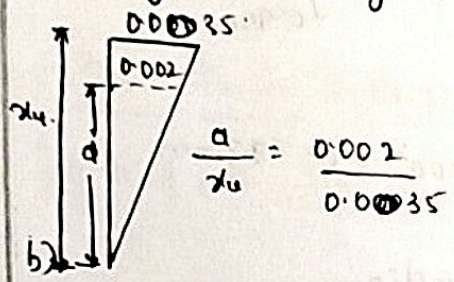 0.0035
0.002
xu
a
a/xu = 0.002/0.0035
b)